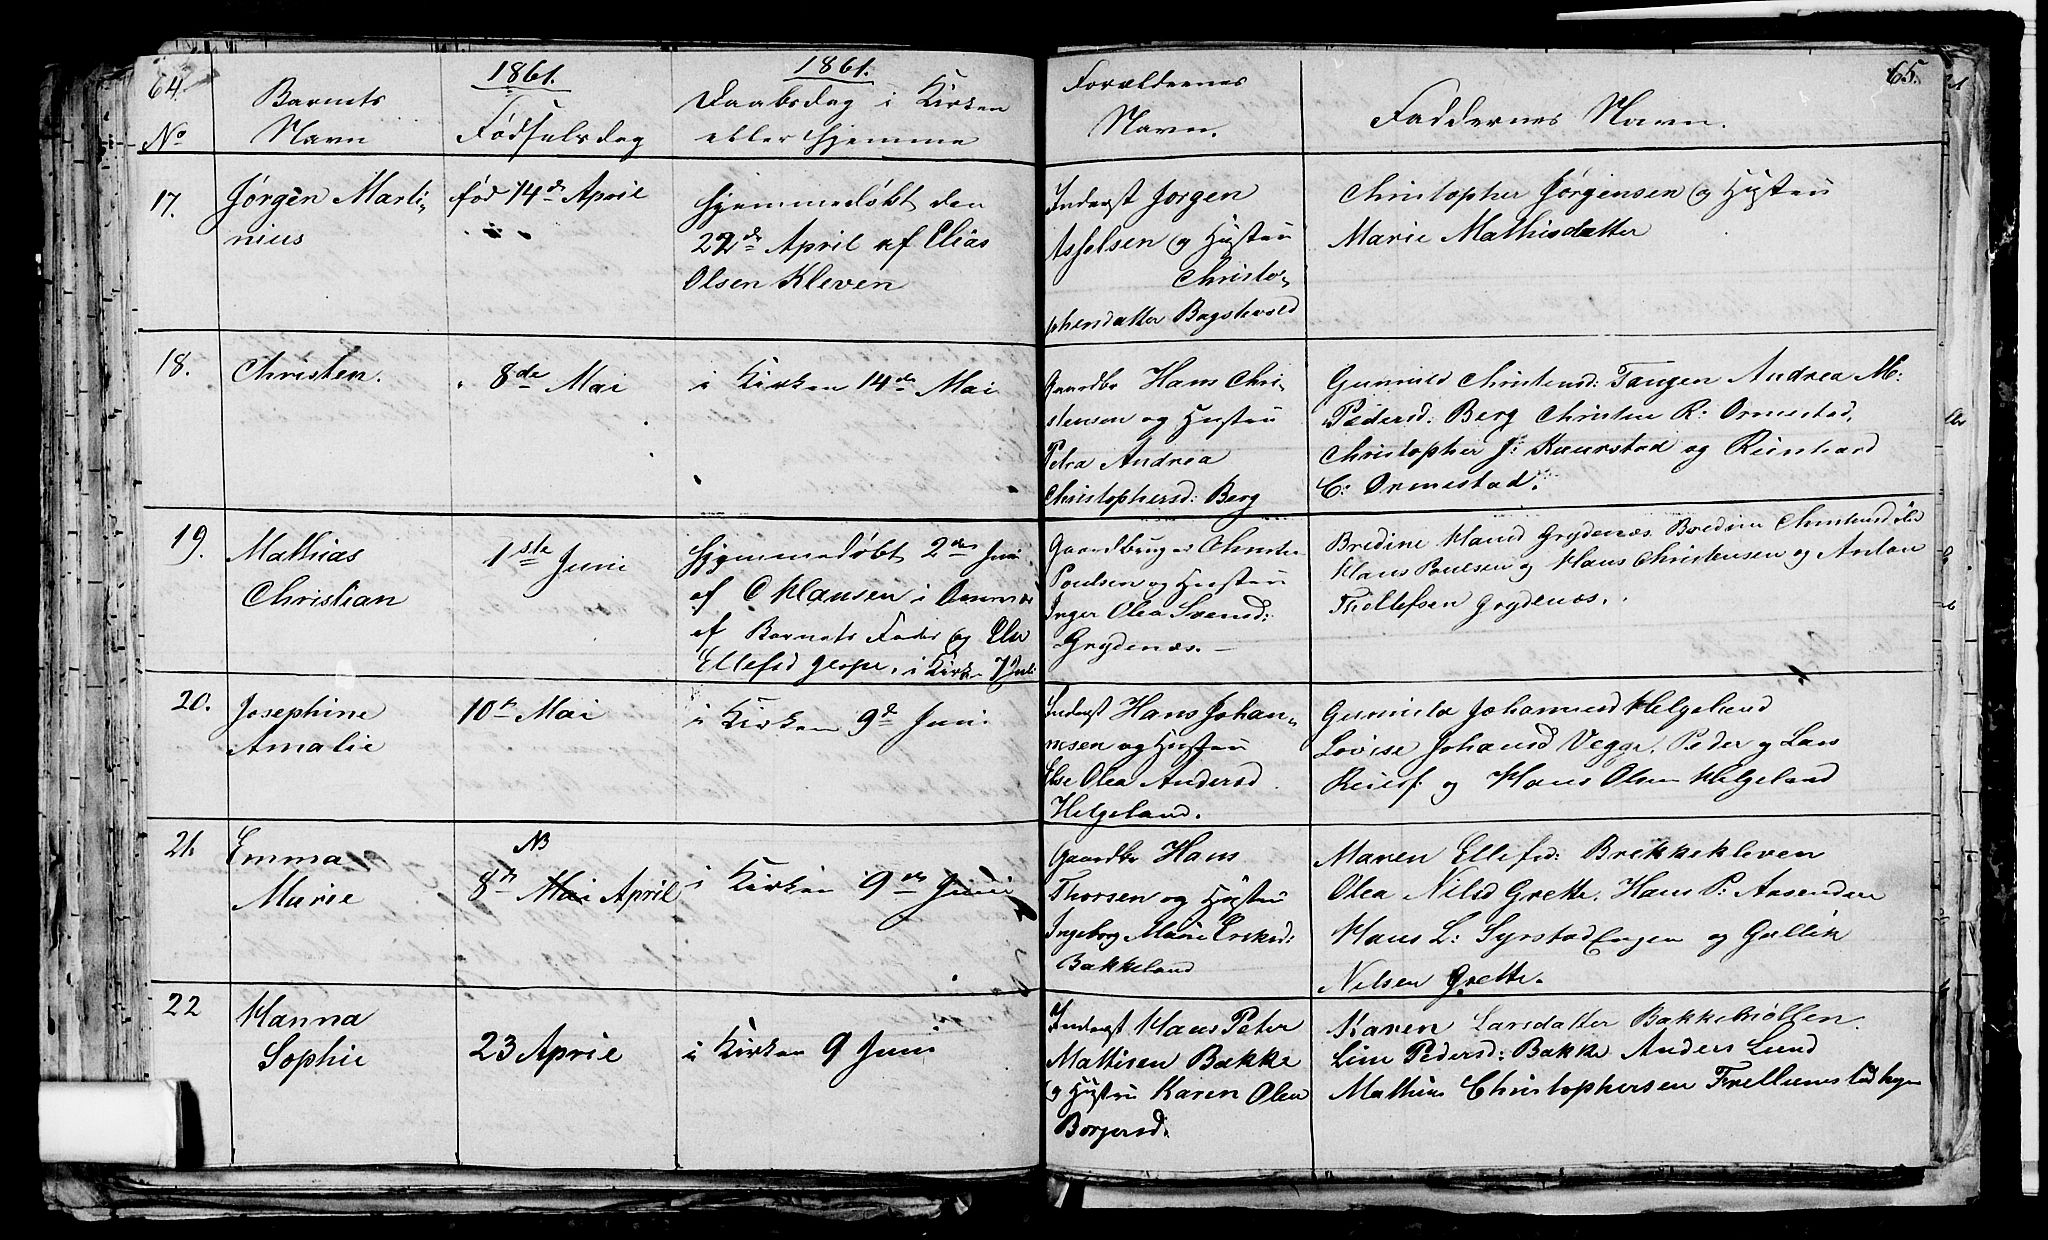 64.
1861.
1861.
65.
No
Barnets
Navn
Fødselsdag
Daabsdag i Kirken
eller hjemme
Forældrenes
Navn.
Faddernes Navn.
17.
Jørgen Marti-
nius
fød 14de April
Hjemmedøbt den
22de April af Elias
Olsen Kleven
Inderst Jørgen
Asselsen og Hustru
Christo-
phersdatter
Christopher Jørgensen og Hustru
Marie Mathisdatter
18.
Christen.
8de Mai
i Kirken 14de Mai
Gaardbr Hans Chri-
stensen og Hustru
Petra Andrea
Christophersd: Berg
Gunnild Christensd: Tangen Andrea M:
Pedersd: Berg Christen R: Ormestad,
Christopher J: Kaurstad og Reinhard
C: Ormestad.
19.
Mathias
Christian
1ste Juni
Hjemmedøbt 2den Juni
af C Klausen i
af Barnets Fader og Else
Ellefsd i Kirken 7 Juli
Gaardbruger Christen
Poulsen og Hustru
Inger Olea Svensd:
Grydenæs. -
Bredine Hansd Grydenæs. Bredine Christensd
Hans Poulsen og Hans Christensen og Anton
Thollefsen Grydenæs.
20.
Josephine
Amalie
10de Mai
i Kirken 9de Juni
Inderst Hans Johan-
nesen og Hustru
Else Olea Andersd
Helgeland.
Gunnild Johannesd Helgeland
Lovise Johansd Vegge, Peder og Lars
og Hans Olsen Helgeland
21
Emma
Marie
NB
8de Mai April
i Kirken 9de Juni
Gaardbr Hans
Thorsen og Hustru
Ingeborg Marie Eriksd:
Bakkeland
Maren Ellefsd: Brekkekleven
Olea Nilsd Grette, Hans P: Aasenden
Hans L: Syrstadengen og Gullik
Nilsen Grette.
22
Hanna
Sophie
23 April
i Kirken 9 Juni
Inderst Hans Peter
Mathisen Bakke
og Hustru Karen Olea
Borgersd.
Karen Larsdatter Bakkemøllen.
Line Pedersd: Bakke Anders Lund
Mathias Christophersen